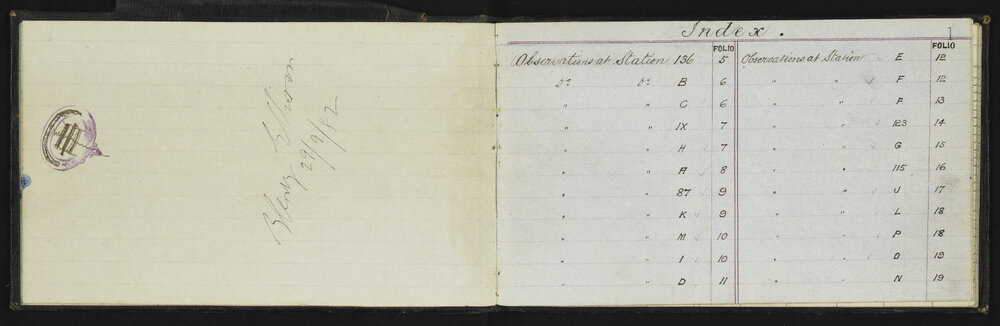 29/9/82
Index.
1
FOLIO
FOLIO
Observations at Station 136 5 Observations at Station E 12
Do Do B 6 " " F 12
" " C 6 " " F 13
" " IX 7 " " 123 14
" " H 7 " " G 15
" " A 8 " " 115 16
" " 87 9 " " J 17
" " K 9 " " L 18
" " M 10 " " P 18
" " I 10 " " O 19
" " D 11 " " N 19